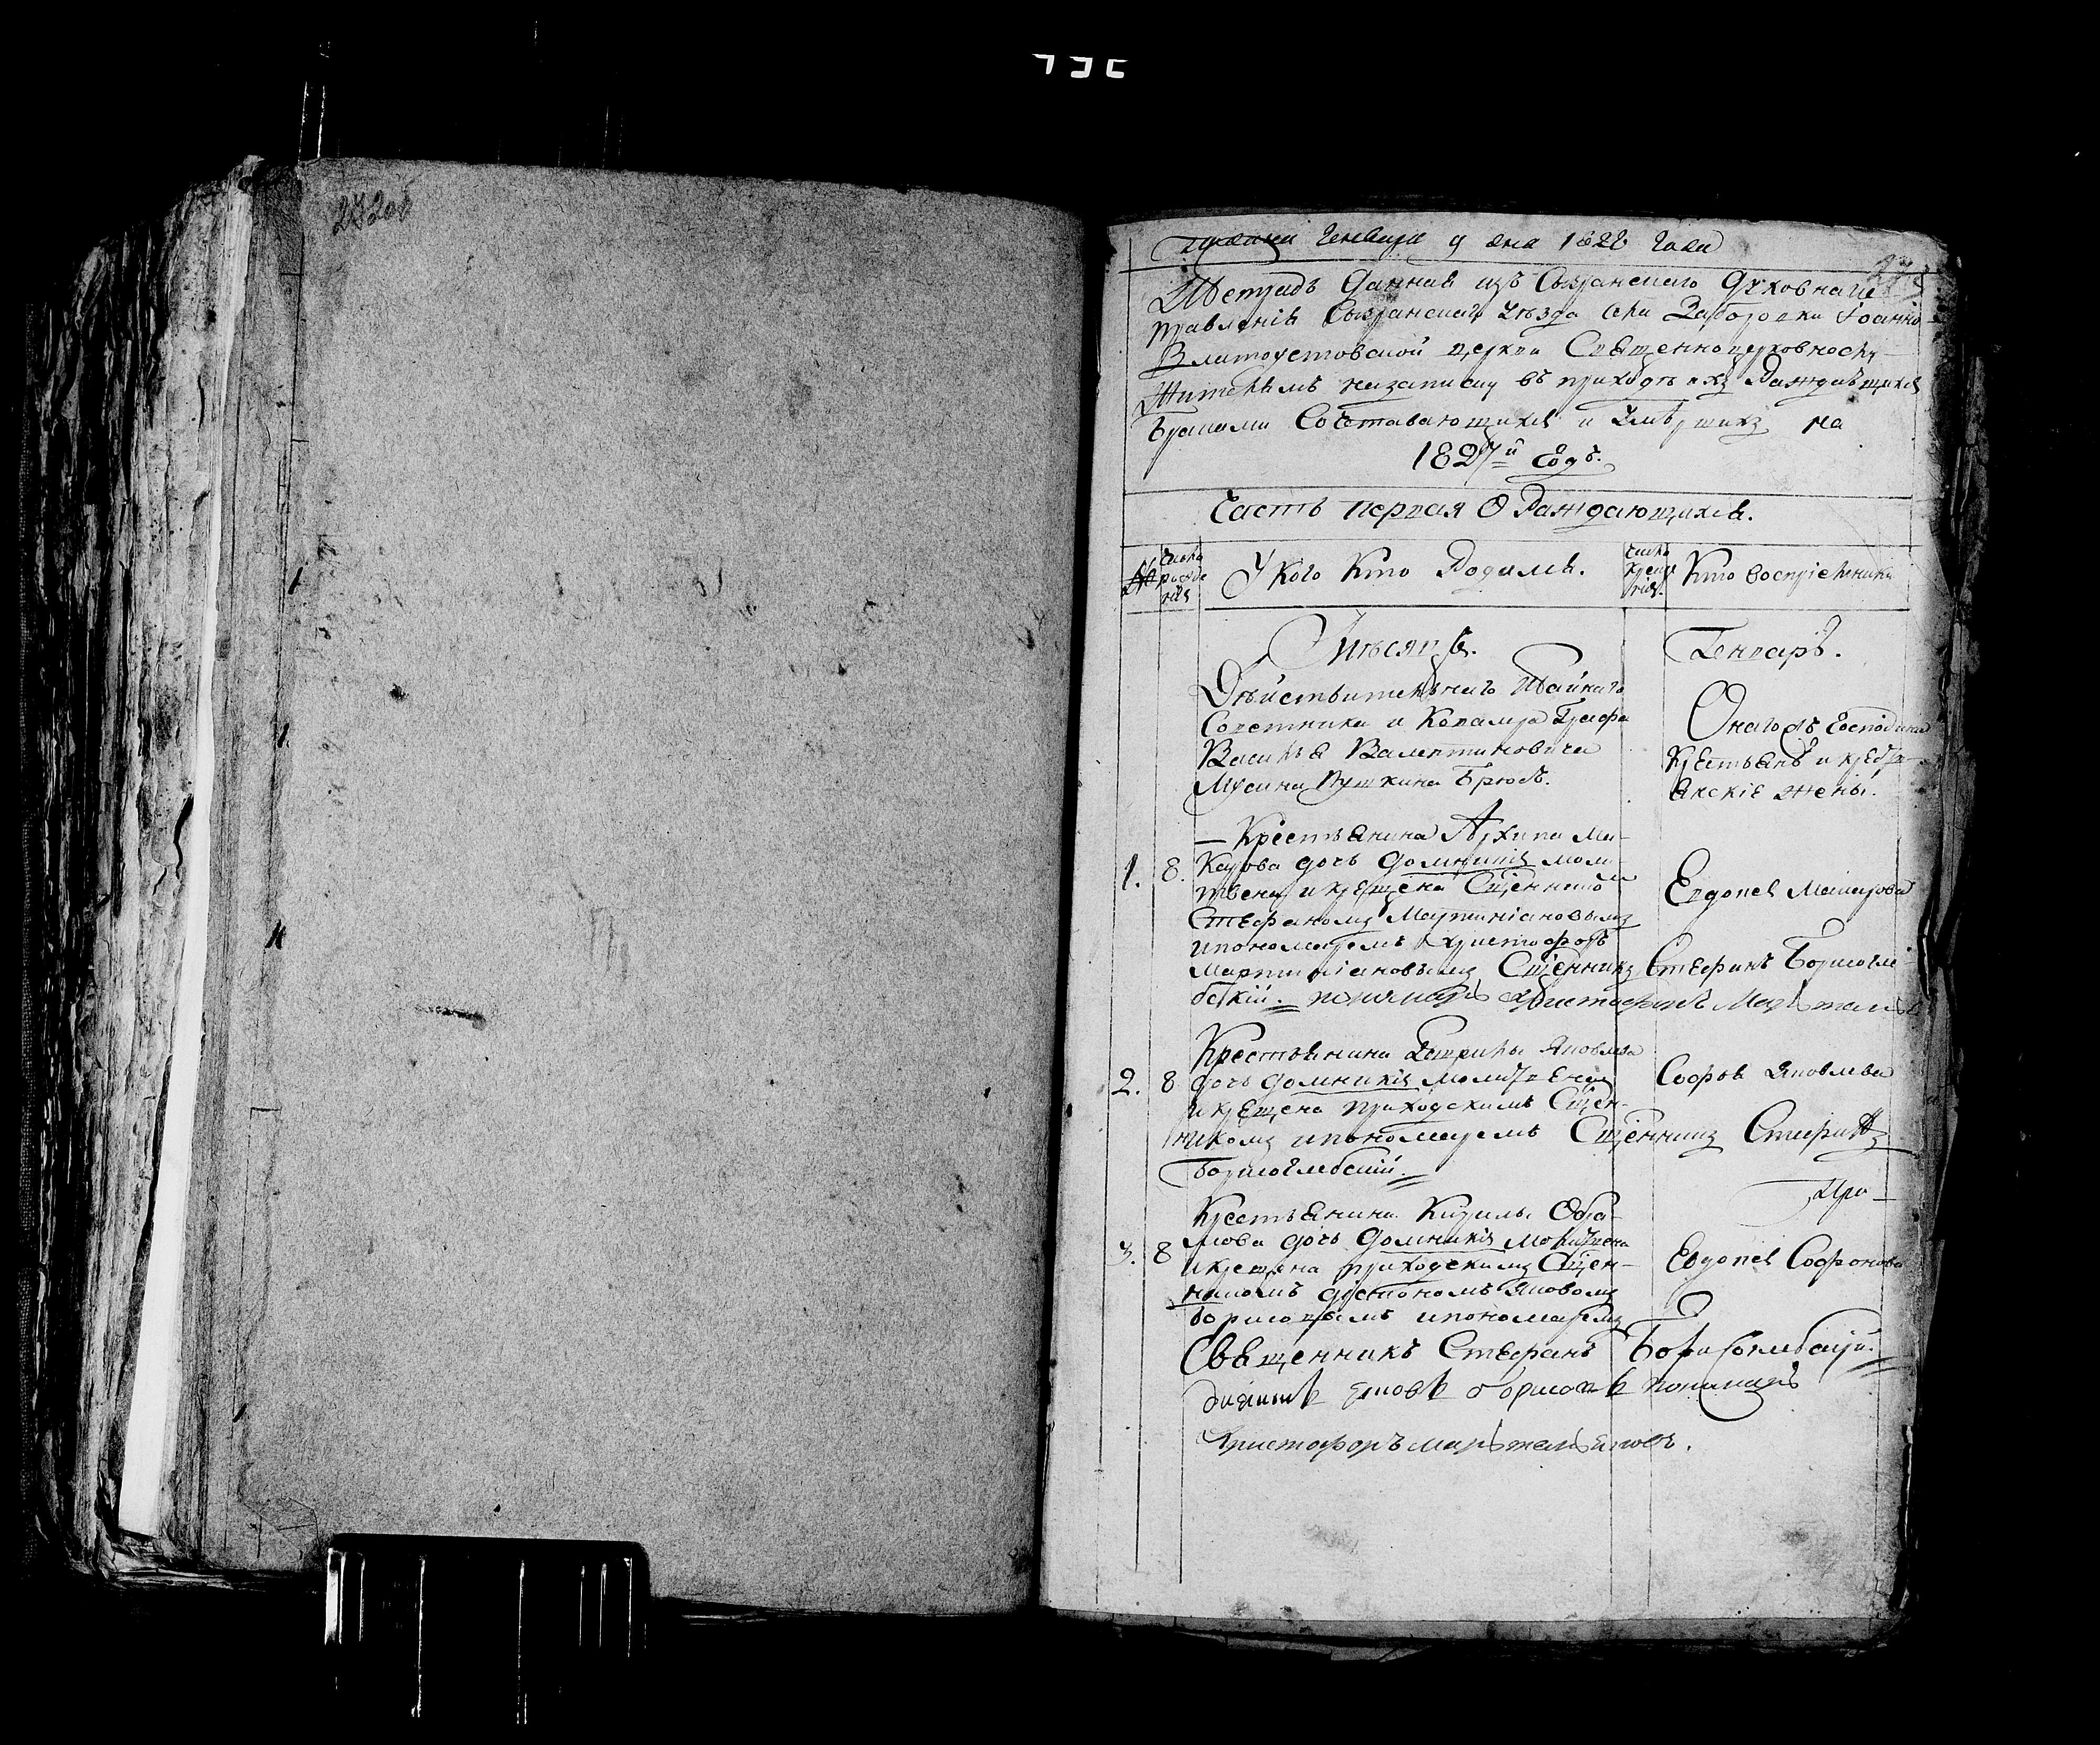 генваря 9 дня 1828 года
Тетрадь данная изъ Сызранскаго духовнаго
правленія Сызранской уезда села Заборовки Іоанно
Златоустовской церкви Священноцерковнослу
жителямъ на записку въ приходе ихъ Раждающихся
Браками Сочетавающихся и Умершихъ на
1827й годъ.
Часть первая О Раждающихся.
№
Числа рожде нія
У Кого Кто Родился.
Числа креще нія.
Кто воспріемники
Месяцъ.
Генварь.
Действительнаго тайнаго
Советника и Ковалера Графа
Василья Валентиновича
Мусина Пушкина Брюсъ.
Онагожъ Господина
Крестьянъ и крестья
янскіе жены.
— Крестьянина Архипа Ма-
1. 8. Карова дочь Домникія моли
твена и крещена Сщенникомъ
Стефаномъ Мартиніановымъ
и пономаремъ Христофоръ
Мартиніановымъ Сщенникъ Стефанъ Борисогле
бскій. пономарь
Евдокея Макарова
Крестьянина Яковлева
2. 8 дочь Домникія Молитвена
и крещена приходскимъ Сщен-
никомъ и пономаремъ Сщенникъ Стефанъ
Борисоглебскій.
Софья Яковлева
Крестьянина Кирилы Абра-
3. 8 мова дочь Домникія Молитвена
и крещена приходскимъ Сщен-
никомъ дьякономъ Яковомъ
борисовымъ и пономаремъ
Евдокея Софонова
Священникъ Стефанъ Борисоглебскій.
дияконъ яковъ борисовъ пономарь
Христофоръ